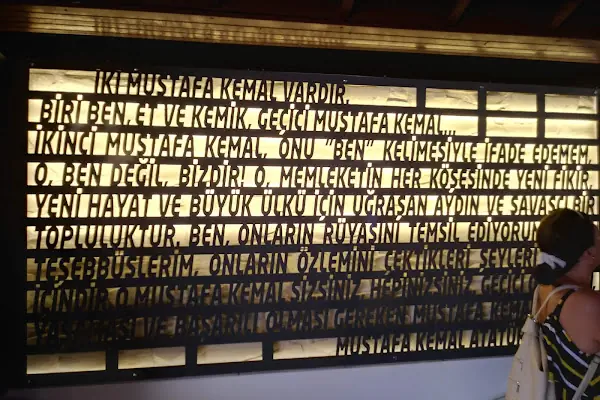 İKİ MUSTAFA KEMAL VARDIR.
BİRİ BEN, ET VE KEMİK, GEÇİCİ MUSTAFA KEMAL...
İKİNCİ MUSTAFA KEMAL, ONU "BEN" KELİMESİYLE İFADE EDEMEM,
O, BEN DEĞİL, BİZDİR! O, MEMLEKETİN HER KÖŞESİNDE YENİ FİKİR,
YENİ HAYAT VE BÜYÜK ÜLKÜ İÇİN UĞRAŞAN AYDIN VE SAVAŞÇI BİR
TOPLULUKTUR. BEN, ONLARIN RÜYASINI TEMSİL EDİYORUM
TEŞEBBÜSLERİM, ONLARIN ÖZLEMİNİ ÇEKTİKLERİ ŞEYLERİ
İÇİNDİR. O MUSTAFA KEMAL SİZSİNİZ, HEPİNİZSİNİZ. GEÇİCİ
YAŞAMASI VE BAŞARILI OLMASI GEREKEN MUSTAFA KEMAL
MUSTAFA KEMAL ATATÜR